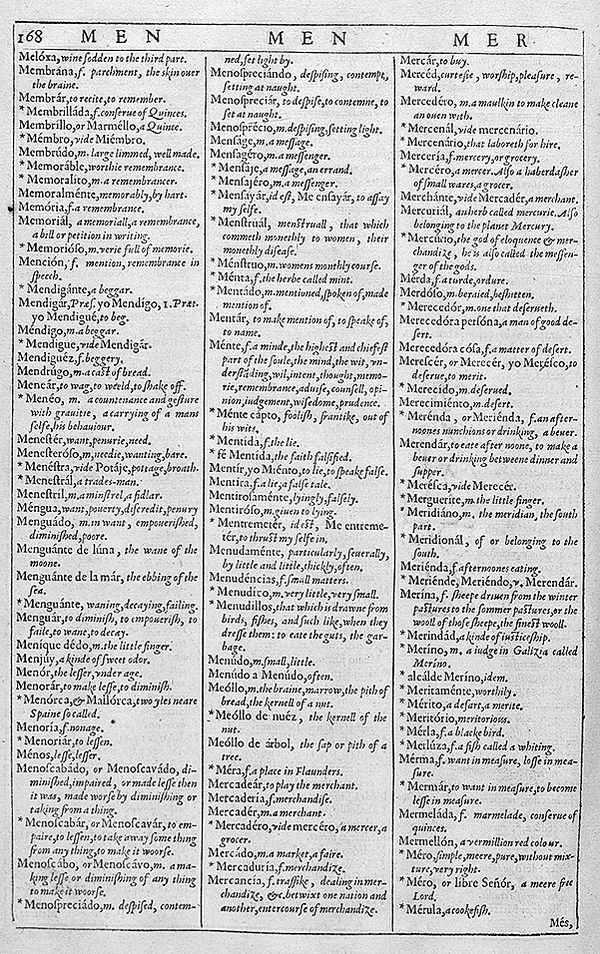 168 MEN MEN MER
Melóxa, wine sodden to the third part.
Membrána, f. parchment, the skin ouer
the braine.
Membrár, to recite, to remember.
* Membrilláda, f. conserue of Quinces.
Membríllo, or Marméllo, a Quince.
* Mémbro, vide Miémbro.
Membrúdo, m. large limmed, well made.
* Memoráble, worthie remembrance.
* Memoralíto, m. a remembrancer.
Memoralménte, memorably, by hart.
Memória, f. a remembrance.
Memoriál, a memoriall, a remembrance,
a bill or petition in writing.
* Memorióso, m. verie full of memorie.
Mención, f. mention, remembrance in
speech.
* Mendigánte, a beggar.
Mendigár, Præs. yo Mendígo, 1. Præt.
yo Mendigué, to beg.
Méndigo, m. a beggar.
* Mendigue, vide Mendigár.
Mendiguéz, f. beggery.
Mendrúgo, m. a cast of bread.
Meneár, to wag, to weeld, to shake off.
* Menéo, m. a countenance and gesture
with grauitie, a carrying of a mans
selfe, his behauiour.
Menestér, want, penurie, need.
Menesteróso, m. needie, wanting, bare.
* Menéstra, vide Potáje, pottage, broath.
* Menestrál, a trades-man.
Menestríl, m. a minstrel, a fidlar.
Méngua, want, pouerty, discredit, penury
Menguádo, m. in want, empouerished,
diminished, poore.
Menguánte de lúna, the wane of the
moone.
Menguánte de la már, the ebbing of the
sea.
* Menguánte, waning, decaying, failing.
Menguár, to diminish, to empouerish, to
faile, to want, to decay.
Meníque dédo, m. the little finger.
Menjúy, a kinde of sweet odor.
Menór, the lesser, vnder age.
Menorár, to make lesse, to diminish.
* Menórca, & Mallórca, two yles neare
Spaine so called.
Menoría, f. nonage.
* Menoriár, to lessen.
Ménos, lesse, lesser.
Menoscabádo, or Menoscavádo, di-
minished, impaired, or made lesse then
it was, made worse by diminishing or
taking from a thing.
* Menoscabár, or Menoscavár, to em-
paire, to lessen, to take away some thing
from any thing, to make it woorse.
Menoscábo, or Menoscávo, m. a ma-
king lesse or diminishing of any thing
to make it woorse.
* Menospreciádo, m. despised, contem-
ned, set light by.
Menospreciándo, despising, contempt,
setting at naught.
Menospreciár, to despise, to contemne, to
set at naught.
Menosprécio, m. despising, setting light.
Menságe, m. a message.
Mensagéro, m. a messenger.
* Mensáje, a message, an errand.
* Mensajéro, m. a messenger.
* Mensayár, id est, Me ensayár, to assay
my selfe.
* Menstruál, menstruall, that which
commeth monethly to women, their
monethly disease.
* Ménstruo, m. womens monthly course.
* Ménta, f. the herbe called mint.
* Mentádo, m. mentioned, spoken of, made
mention of.
Mentár, to make mention of, to speake of,
to name.
Ménte, f. a minde, the highest and chiefest
part of the soule, the mind, the wit, vn-
derstāding, wil, intent, thought, memo-
rie, remembrance, aduise, counsell, opi-
nion, iudgement, wisedome, prudence.
* Ménte cápto, foolish, frantike, out of
his wits.
* Mentida, f. the lie.
* fé Mentida, the faith falsified.
Mentír, yo Miénto, to lie, to speake false.
Mentíra, f. a lie, a false tale.
Mentirosaménte, lyingly, falsely.
Mentiróso, m. giuen to lying.
* Mentremetér, id est, Me entreme-
tér, to thrust my selfe in.
Menudaménte, particularly, seuerally,
by little and little, thickly, often.
Menudéncias, f. small matters.
* Menudíco, m. very little, very small.
* Menudíllos, that which is drawne from
birds, fishes, and such like, when they
dresse them: to eate the guts, the gar-
bage.
Menúdo, m. small, little.
Menúdo a Menúdo, often.
Meóllo, m. the braine, marrow, the pith of
bread, the kernell of a nut.
* Meóllo de nuéz, the kernell of the
nut.
Meóllo de árbol, the sap or pith of a
tree.
* Méra, f. a place in Flaunders.
Mercadeár, to play the merchant.
Mercadería, f. merchandise.
Mercadér, m. a merchant.
* Mercadéro, vide mercéro, a mercer, a
grocer.
Mercádo, m. a market, a faire.
* Mercaduría, f. merchandize.
Mercancía, f. traffike, dealing in mer-
chandize, &c. betwixt one nation and
another, entercourse of merchandize.
Mercár, to buy.
Mercéd, curtesie, worship, pleasure, re-
ward.
Mercedéro, m. a maulkin to make cleane
an ouen with.
* Mercenál, vide mercenário.
* Mercenário, that laboreth for hire.
Mercería, f. mercery, or grocery.
* Mercéro, a mercer. Also a haberdasher
of small wares, a grocer.
Merchánte, vide Mercadér, a merchant.
Mercuriál, an herb called mercurie. Also
belonging to the planet Mercury.
* Mercúrio, the god of eloquence & mer-
chandize, he is also called the messen-
ger of the gods.
Mérda, f. a turde, ordure.
Merdóso, m. beraied, beshitten.
* Merecedór, m. one that deserueth.
Merecedóra persóna, a man of good de-
sert.
Merecedóra cósa, f. a matter of desert.
Merescér, or Merecér, yo Merésco, to
deserue, to merit.
* Merecido, m. deserued.
Merecimiénto, m. desert.
* Merénda, or Meriénda, f. an after-
noones nunchions or drinking, a beuer.
Merendár, to eate after noone, to make a
beuer or drinking betweene dinner and
supper.
* Merésca, vide Merecér.
* Merguerite, m. the little finger.
* Meridiáno, m. the meridian, the south
part.
* Meridionál, of or belonging to the
south.
Meriénda, f. afternoones eating.
* Meriénde, Meriéndo, v. Merendár.
Merína, f. sheepe driuen from the winter
pastures to the sommer pastures, or the
wooll of those sheepe, the finest wooll.
* Merindád, a kinde of iusticeship.
* Meríno, m. a iudge in Galizia called
Merino.
* alcálde Meríno, idem.
* Meritaménte, worthily.
* Mérito, a desart, a merite.
* Meritório, meritorious.
* Mérla, f. a blacke bird.
* Merlúza, f. a fish called a whiting.
Mérma, f. want in measure, losse in mea-
sure.
* Mermár, to want in measure, to become
lesse in measure.
Mermeláda, f. marmelade, conserue of
quinces.
Mermellón, a vermillion red colour.
* Méro, simple, meere, pure, without mix-
ture, very right.
* Méro, or libre Señór, a meere free
Lord.
* Mérula, a cooke fish.
Més,